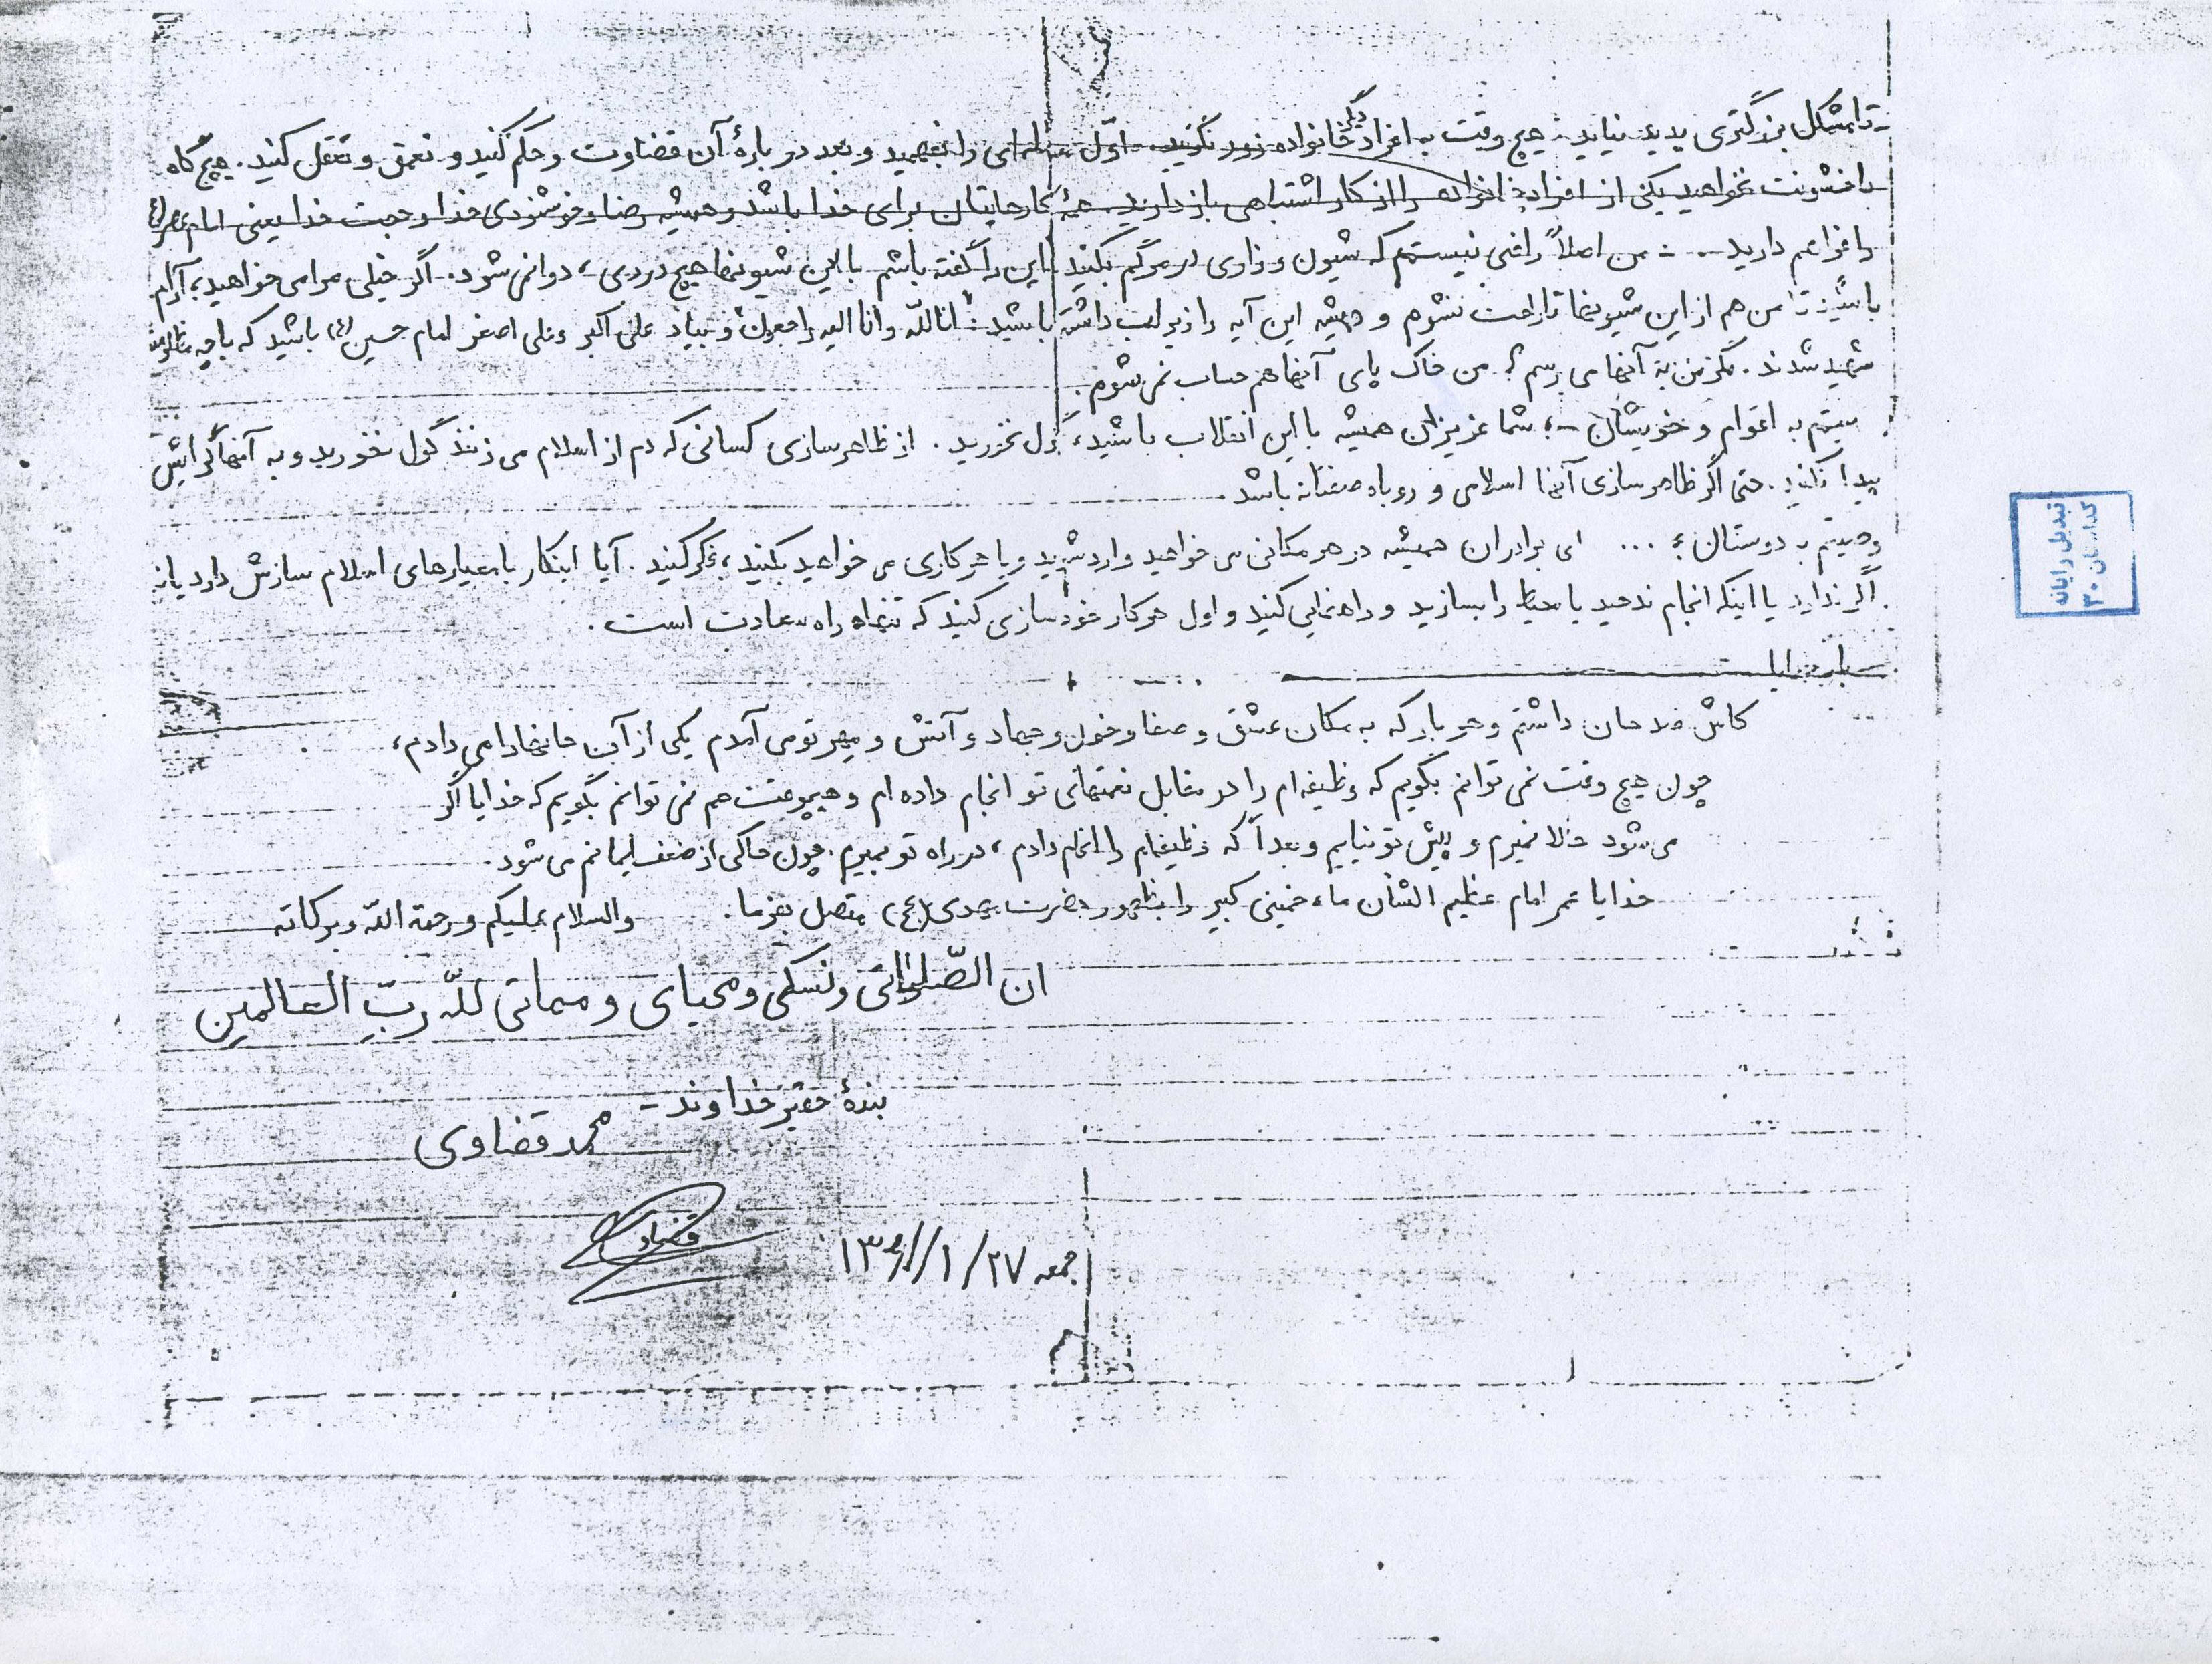 تا مشکل بزرگتری پدید نیاید. هیچ وقت به افراد دیگر خانواده زور نگوئید. اوّل مسئله‌ای را بفهمید و بعد در بارهٔ آن قضاوت و حکم کنید و تعمق و تعقل کنید. هیچ گاه
با خشونت نخواهید یکی از افراد خانواده را از کار اشتباهی باز دارید. همهٔ کارهایتان برای خدا باشد و همیشه رضا و خوشنودی خدا و حجت خدا یعنی امام عصر
را فراهم دارید. من اصلاً راضی نیستم که شیون و زاری در مرگم بکنید. این را گفته باشم با این شیونها هیچ دردی، دوا نمی شود. اگر خیلی مرا می خواهید، آرام
باشید تا من هم از این شیونها ناراحت نشوم و همیشه این آیه را زیر لب داشته باشید: انا للّه و انا الیه راجعون و بیاد علی اکبر و علی اصغر امام حسین (ع) باشید که با چه
شهید شدند. مگر من به آنها می رسم؟ من خاک پای آنها هم حساب نمی شوم.
به اقوام و خویشان؛ شما عزیزان همیشه با این انقلاب باشید، گول نخورید. از ظاهر سازی کسانی که دم از اسلام می زنند گول نخورید و به آنها گرایش
پیدا نکنید. حتی اگر ظاهر سازی آنها اسلامی و روباه صفتانه باشد.
وصیتم به دوستان؛ ... ای برادران همیشه در هر مکانی می خواهید وارد شوید و یا هر کاری می خواهید بکنید، فکر کنید. آیا اینکار با معیارهای اسلام سازش دارد یا نه
اگر ندارد یا اینکه انجام ندهید یا محیط را بسازید و راهنمایی کنید و اول هر کار خود سازی کنید که تنها راه سعادت است.
بار خدایا
کاش صد جان داشتم و هر بار که به مکان عشق و صفا و خون و جهاد و آتش و مهر تو می آمدم یکی از آن جانها را می دادم،
چون هیچ وقت نمی توانم بگویم که وظیفه‌ام را در مقابل نعمتهای تو انجام داده ام و هیچوقت هم نمی توانم بگویم که خدایا اگر
می شود حالا نمیرم و پیش تو نیایم و بعداً که وظیفه‌ام را انجام دادم، در راه تو بمیرم. چون حاکی از ضعف ایمانم می شود.
خدایا عمر امام عظیم الشان ما، خمینی کبیر را بظهور حضرت مهدی (عج) متصل بفرما. والسلام علیکم و رحمة اللّه و برکاته
ان الصّلواتی و نسکی و محیای و مماتی للّه ربّ العالمین
بندهٔ حقیر خداوند -
محمد قضاوی
قضاوی
جمعه ۲۷/۱/
تبدیل رایانه
۳۰